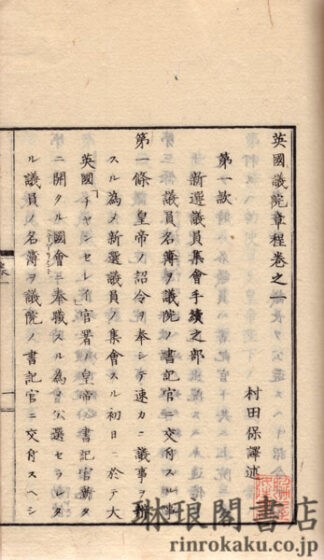 英國議院章程卷之
村田保譯述
第一款
新選議員集會手續之部
議員名簿ヲ議院ノ書記官ニ交付スル事
第一條皇帝ノ詔令ヲ奉シテ速カニ議事ヲ辨
スル為メ新選議員ノ集會スル初日ニ於テ大
英國「チヤンセレイ」官署ノ皇帝ノ書記官新タ
ニ開クル國會ニ奉職スル為メ公選セラレタ
ル議員ノ名簿ヲ議院ノ書記官ニ交付スヘシ
琳琅閣書店
rinrokaku.co.jp